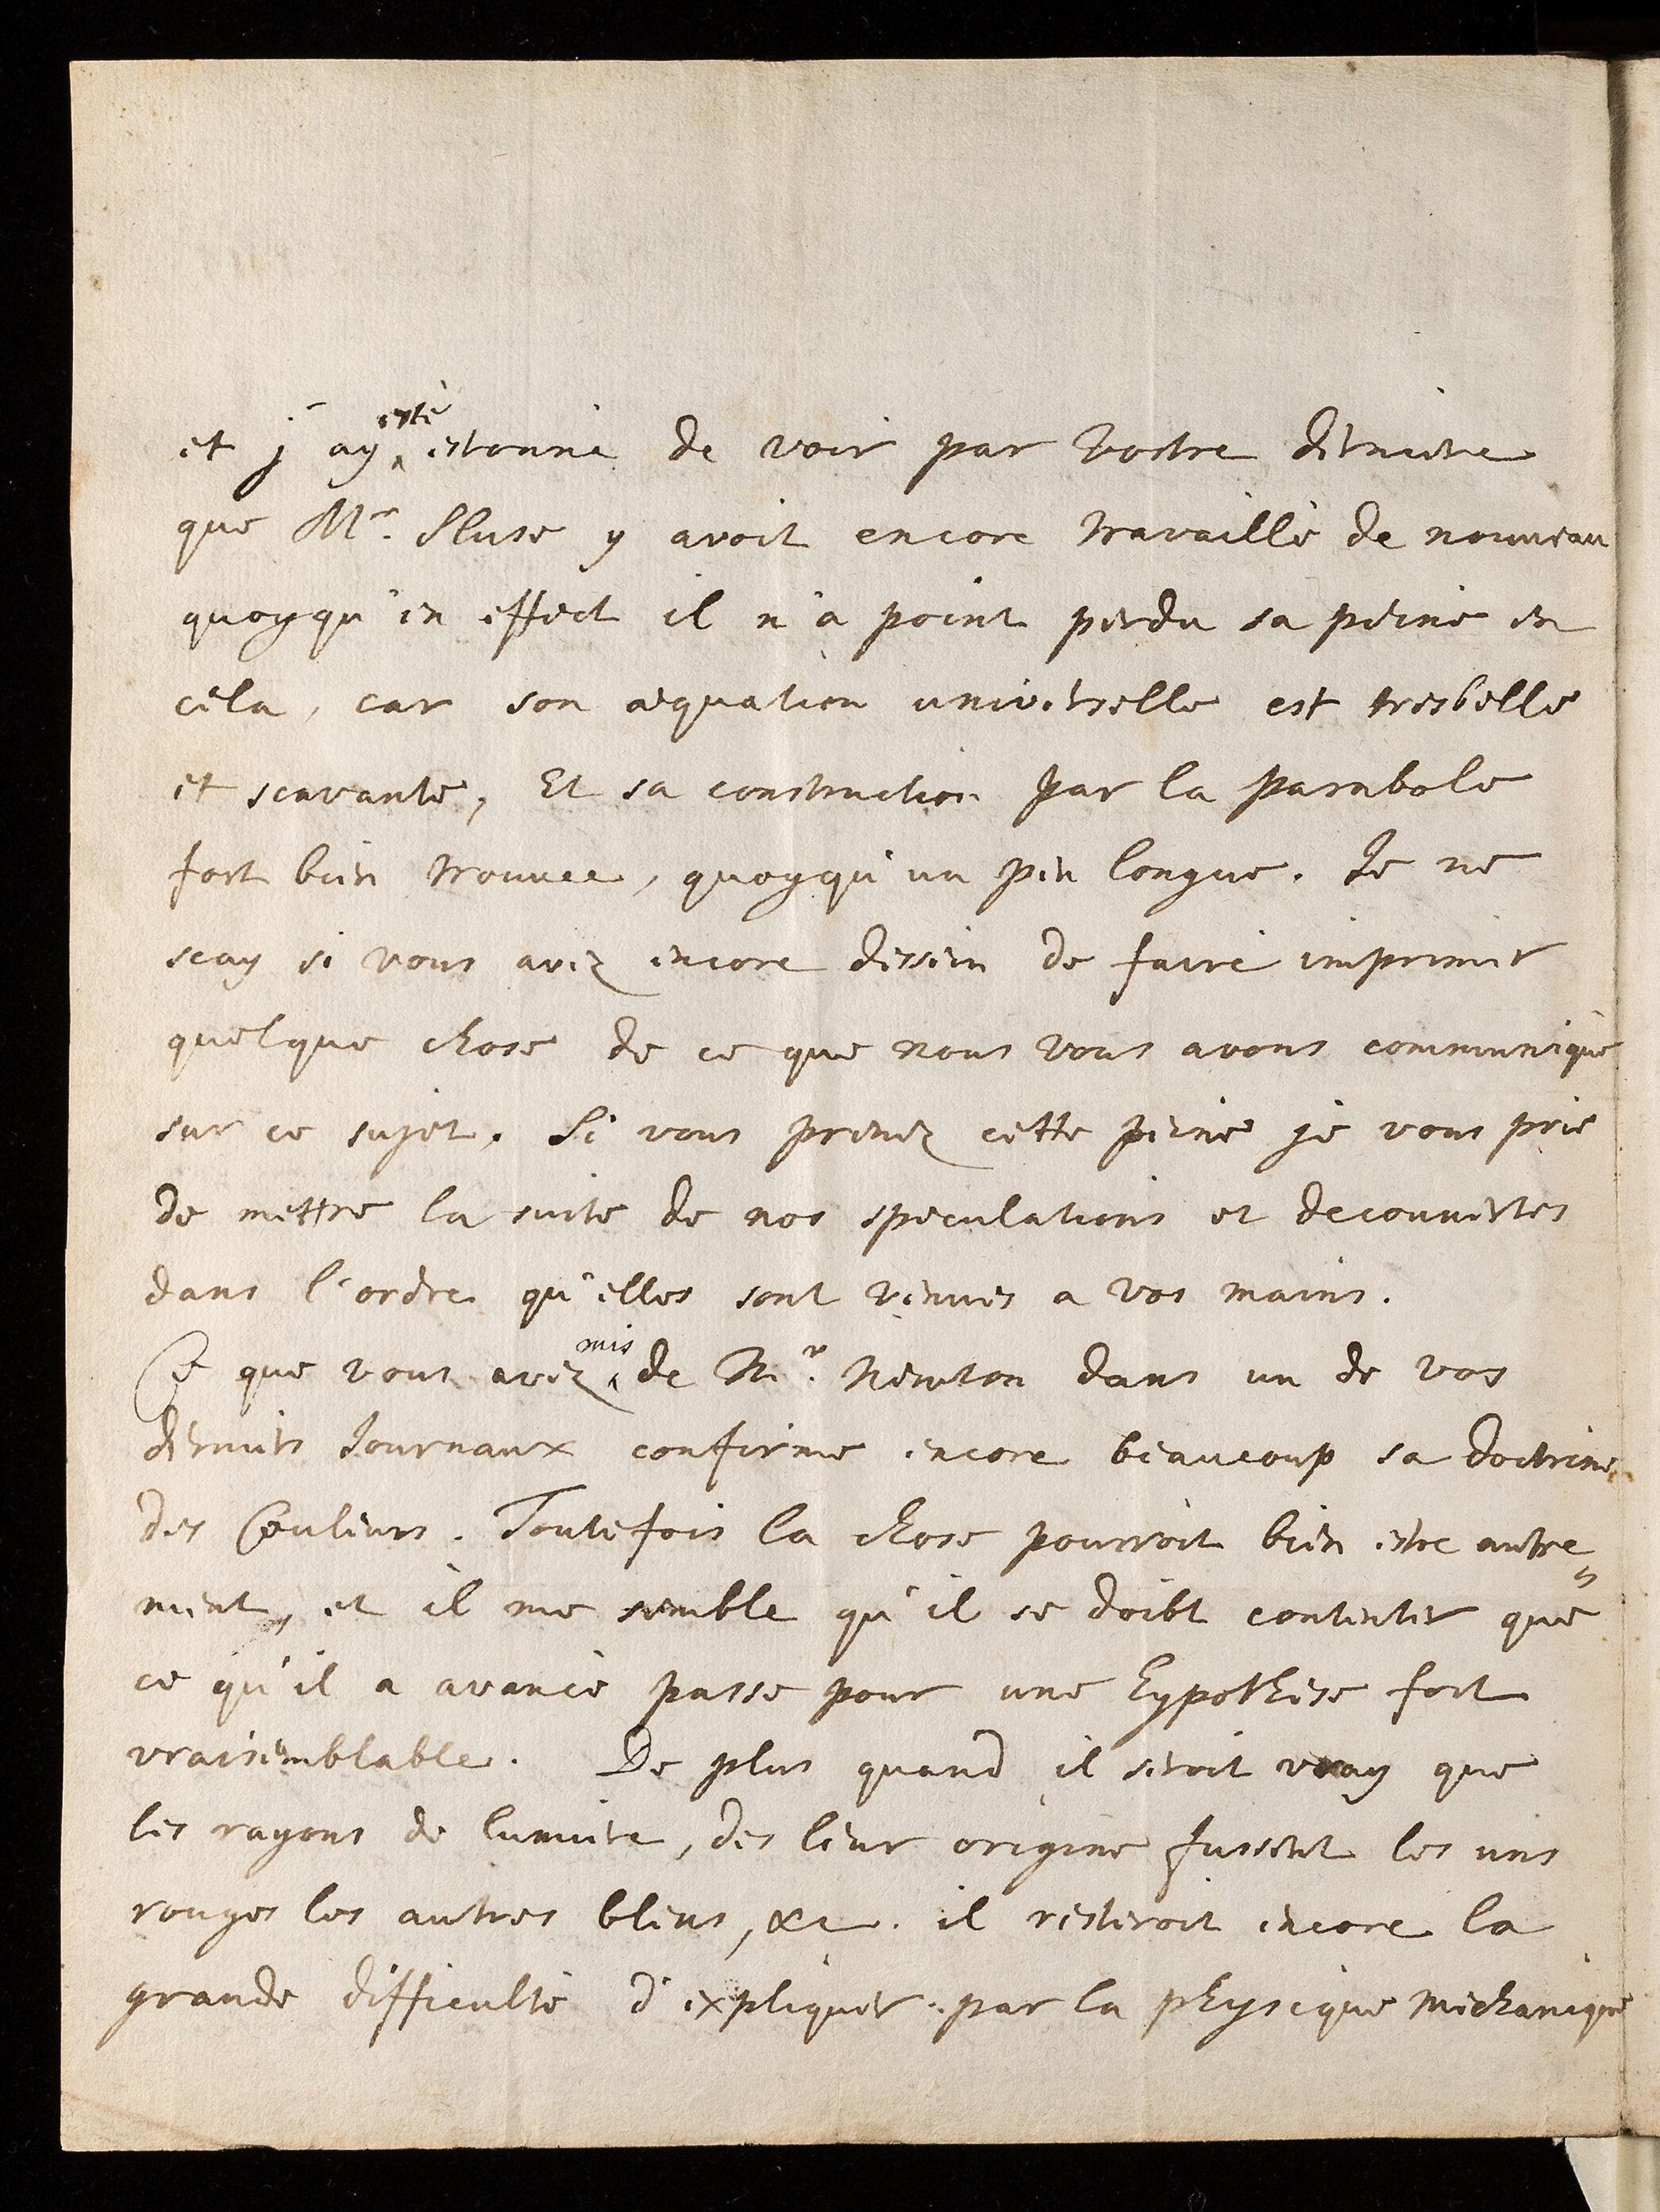 et j'ay esté estonné de voir par vostre derniere
que Mr. Sluse y avoit encore travaillè de nouveau
quoyqu'en effect il n'a point perdu sa peine en
cela, car son æquation universelle est tresbelle
et scavante, Et sa construction par la parabole
fort bien trouvee, quoyqu'un peu longue. Je ne
scay si vous avez encore dessein de faire imprimer
quelque chose de ce que nous vous avons communiquè
sur ce sujet. Si vous prenez cette peine je vous prie
de mettre la suite de nos speculations et decouvertes
dans l'ordre qu'elles sont venues a vos mains.
Ce que vous avez mis de Mr. Newton dans un de vos
derniers Journaux confirme encore beaucoup sa doctrine
des Couleurs. Toutefois la chose pourroit bien estre autre=
ment, et il me semble qu'il se doibt contenter que
ce qu'il a avancè passe pour une hypothese fort
vraisemblable. De plus quand il seroit vray que
les rayons de lumiere, des leur origine fussent les uns
rouges les autres bleus, &c. il resteroit encore la
grande difficultè d'expliquer par la physique mechanique